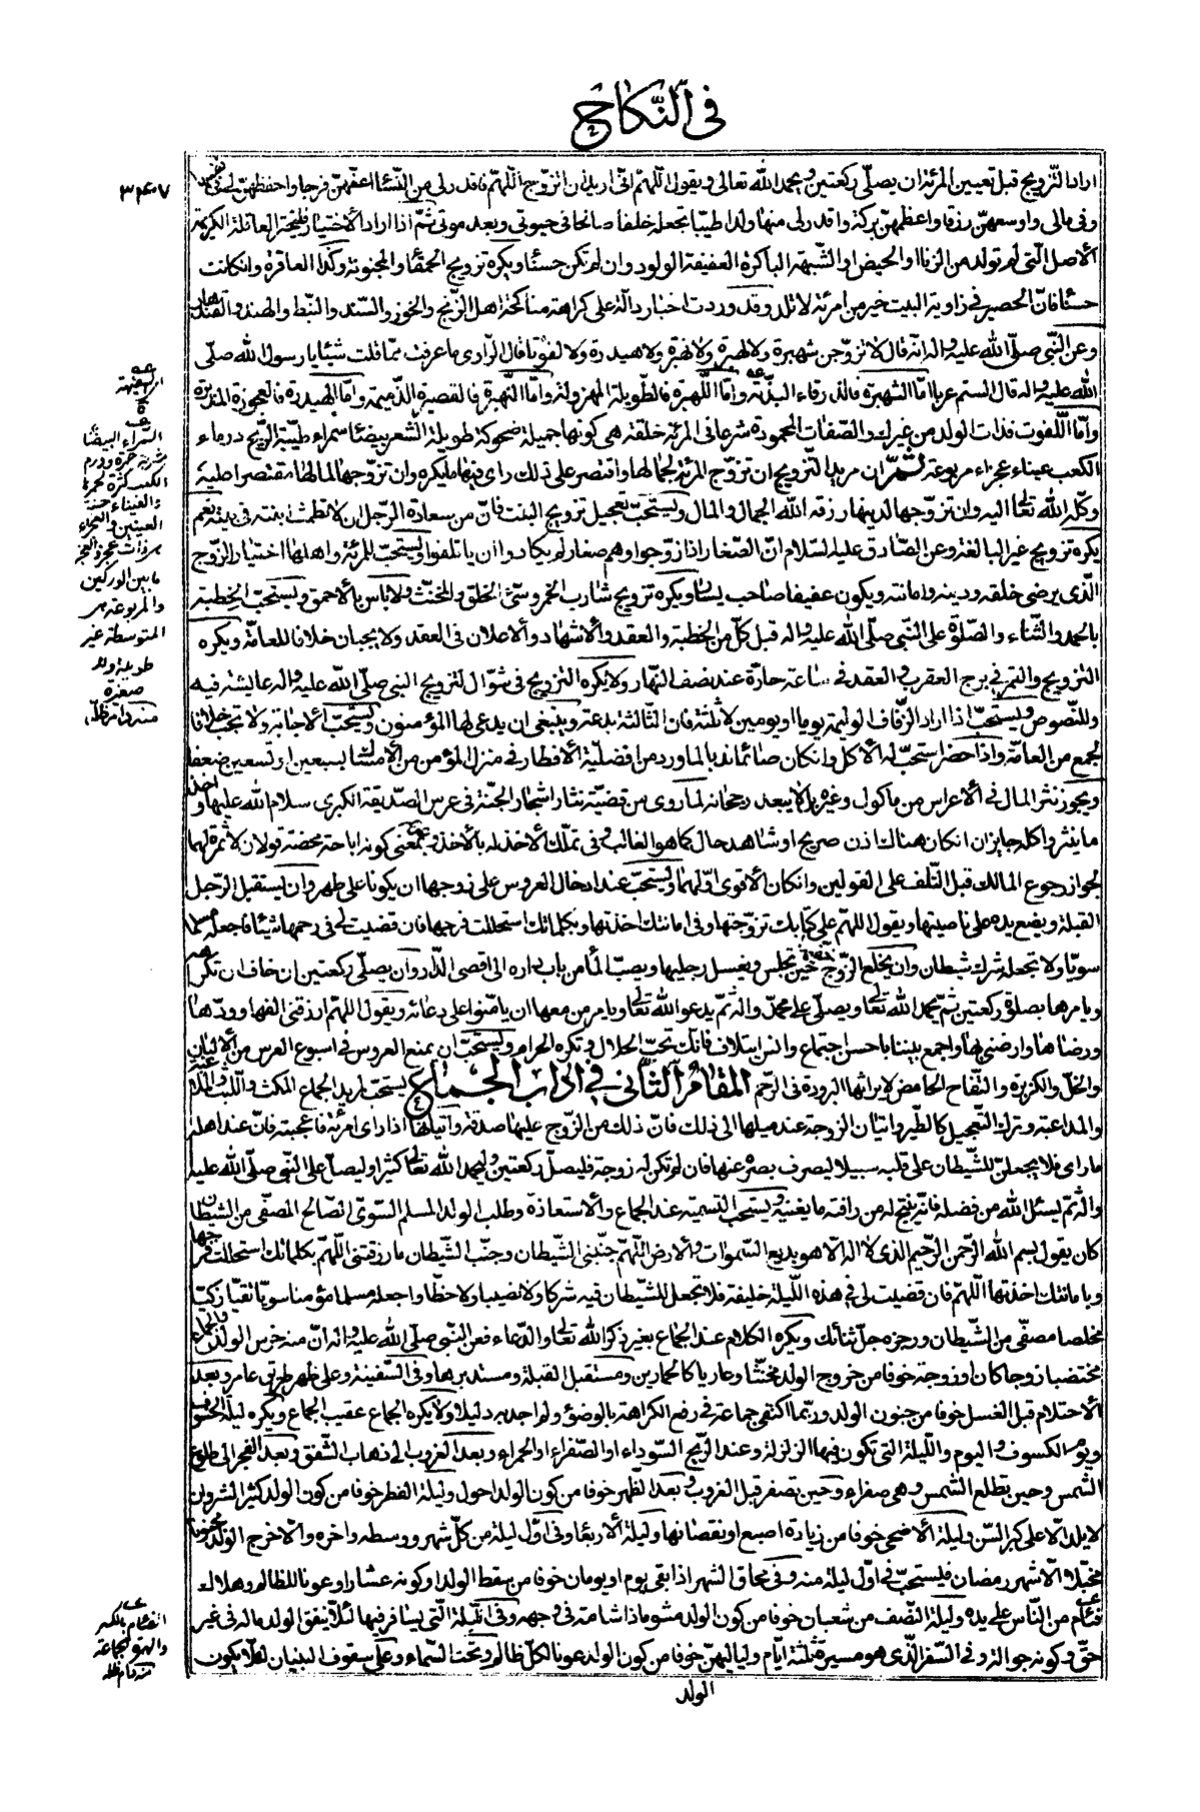 في النكاح
٣٤٠٧
اراد التزويج قبل تعيين المرئة ان يصلّي ركعتين ويحمد الله تعالى ويقول اللّهمّ انّي اريد ان اتزوّج اللّهمّ فاقدر لي من النّساء اعفّهنّ فرجا واحفظهنّ لي في نفسها
وفي مالي واوسعهنّ رزقا واعظمهنّ بركة واقدر لي منها ولدا طيّبا تجعله خلفا صالحا في حيوتي وبعد موتي ثمّ اذا اراد الاختيار فليختر العاقلة الكريمة
الاصل الّتي لم تولد من الزنا او الحيض او الشّبهة الباكرة العفيفة الولود وان لم تكن حسناء ويكره تزويج الحمقاء والمجنونة وكذا العاقرة وان كانت
حسناء فانّ الحصير في زاوية البيت خير من امرئة لا تلد وقد وردت اخبار دالّة على كراهة مناكحة اهل الزّنج والخوز والسّند والنّبط والهند والقندهار
وعن النّبي صلّى الله عليه واله انّه قال لا تزوّجن شهبرة ولا لهبرة ولا نهبرة ولا هيدرة ولا لفوتا قال الرّاوي ما عرفت ممّا قلت شيئا يا رسول الله صلّى
الله عليه واله قال الستم عربا امّا الشهبرة فالزرقاء البذيّة وامّا اللّهبرة فالطّويلة المهزولة وامّا النّهبرة فالقصيرة الذّميمة وامّا الهيدرة فالعجوزة المدبرة
وامّا اللّفوت فذات الولد من غيرك والصّفات المحمودة شرعا في المرئة خلقة هي كونها جميلة ضحوكة طويلة الشّعر بيضاء سمراء طيّبة الرّيح درماء
الكعب عيناء عجزاء مربوعة ثمّ ان مريد التزويج ان تزوّج المرئة لجمالها واقتصر على ذلك راى فيها ما يكره وان تزوّجها لمالها مقتصرا عليه
وكله الله تعالى اليه وان تزوّجها لدينها رزقه الله الجمال والمال ويستحبّ تعجيل تزويج البنت فانّ من سعادة الرّجل ان لا تطمث ابنته في بيته نعم
يكره تزويج غير البالغة وعن الصّادق عليه السّلام انّ الصّغار اذا زوّجوا وهم صغار لم يكادوا ان ياتلفوا ويستحبّ للمرئة واهلها اختيار الزّوج
الّذي يرضى خلقه ودينه وامانته ويكون عفيفا صاحب يسار ويكره تزويج شارب الخمر وسيّئ الخلق والمخنّث ولا باس بالاحمق ويستحبّ الخطبة
بالحمد والثّناء والصّلوة على النّبي صلّى الله عليه واله قبل كلّ من الخطبة والعقد والاشهاد والاعلان في العقد ولا يجبان خلافا للعامّة ويكره
التزويج والقمر في برج العقرب والعقد في ساعة حارّة عند نصف النّهار ولا يكره التزويج في شوّال لتزويج النبي صلّى الله عليه واله عايشة فيه
وللنّصوص ويستحبّ اذا اراد الزّفاف الوليمة يوما او يومين لا ثلثة فان الثّالثة بدعة وينبغي ان يدعى لها المؤمنون ويستحبّ الاجابة ولا تجب خلافا
لجمع من العامّة واذا حضر استحبّ له الاكل وان كان صائما ندبا لما ورد من افضليّة الافطار في منزل المؤمن من الامساك بسبعين او تسعين ضعفا
ويجوز نثر المال في الاعراس من ماكول وغيره بل لا يبعد رجحانه لما روى من قضيّة نثار اشجار الجنّة في عرس الصّديقة الكبرى سلام الله عليها واخذ
ما ينثر واكله جايزان ان كان هناك اذن صريح او شاهد حال كما هو الغالب وفي تملّك الاخذ له بالاخذ وعدمه بمعنى كونه اباحة محضة قولان لا ثمرة لهما
لجواز رجوع المالك قبل التّلف على القولين وان كان الاقوى اوّلهما ويستحبّ عند ادخال العروس على زوجها ان يكونا على طهر وان يستقبل الرّجل
القبلة ويضع يده على ناصيتها ويقول اللهمّ على كتابك تزوّجتها وفي امانتك اخذتها وبكلماتك استحللت فرجها فان قضيت لي في رحمها شيئا فاجعله مسلما
سويّا ولا تجعله شرك شيطان وان يخلع الزّوج خفّيها حين تجلس ويغسل رجليها ويصبّ الماء من باب داره الى اقصى الدّار وان يصلّي ركعتين ان خاف ان تكرهه
ويامرها بصلوة ركعتين ثمّ يحمد الله تعالى ويصلّي على محمّد واله ثمّ يدعو الله تعالى ويامر من معها ان يامّنوا على دعائه ويقول اللهمّ ارزقني الفها وودّها
ورضاها وارضني بها واجمع بيننا باحسن اجتماع وانس ايتلاف فانّك تحبّ الحلال وتكره الحرام ويستحبّ ان يمنع العروس في اسبوع العرس من الالبان
والخلّ والكزبرة والتفّاح الحامض لايراثها البرودة في الرّحم المقام الثّاني في اداب الجماع يستحبّ لمريد الجماع المكث واللّبث والملاعبة
والمداعبة وترك التّعجيل كالطّير واتيان الزوجة عند ميلها الى ذلك فانّ ذلك من الزّوج عليها صدقة واتيانها اذا راى امرئة فاعجبته فانّ عند اهله
ما راى فلا يجعلنّ للشّيطان على قلبه سبيلا ليصرف بصره عنها فان لم تكن له زوجة فليصلّ ركعتين وليحمد الله تعالى كثيرا وليصلّ على النّبي صلّى الله عليه
واله ثمّ ليسئل الله من فضله فانّه ينتج له من رافته ما يغنيه ويستحب التسمية عند الجماع والاستعاذة وطلب الولد المسلم السّويّ الصّالح المصفّى من الشيطان
كان يقول بسم الله الرّحمن الرّحيم الذي لا اله الّا هو بديع السّموات والارض اللّهمّ جنّبني الشّيطان وجنّب الشّيطان ما رزقتني اللّهمّ بكلماتك استحللت فرجها
وبامانتك اخذتها اللّهمّ فان قضيت لي في هذه اللّيلة خليفة فلا تجعل للشّيطان فيه شركا ولا نصيبا ولا حظّا واجعله مسلما مؤمنا سويّا نقيّا زكيّا
مخلصا مصفّى من الشّيطان ورجزه جلّ ثنائك ويكره الكلام عند الجماع بغير ذكر الله تعالى والدّعاء فعن النّبي صلّى الله عليه واله انّ منه خرس الولد والجماع
مختضبا زوجا كان او زوجة خوفا من خروج الولد مخنّثا وعاريا كالحمارين ومستقبل القبلة ومستدبرها وفي السّفينة وعلى ظهر طريق عامر وبعد
الاحتلام قبل الغسل خوفا من جنون الولد وربّما اكتفى جماعة في رفع الكراهة بالوضوء ولم اجد به دليلا ولا يكره الجماع عقيب الجماع ويكره ليلة الخسوف
ويوم الكسوف واليوم واللّيلة الّتي تكون فيها الزلزلة وعند الرّيح السّوداء او الصّفراء او الحمراء وبعد الغروب الى ذهاب الشّفق وبعد الفجر الى طلوع
الشّمس وحين يطلع الشّمس وهي صفراء وحين تصفر قبل الغروب وبعد الظّهر خوفا من كون الولد احول وليلة الفطر خوفا من كون الولد كثير الشّر وان
لا يلد الّا على كبر السّن وليلة الاضحى خوفا من زيادة اصبع او نقصانها وليلة الاربعاء وفي اوّل ليلة من كلّ شهر ووسطه واخره والّا خرج الولد مجنونا
مخبّلا الّا شهر رمضان فليستحبّ في اوّل ليلة منه وفي محاق الشّهر اذا بقى يوم او يومان خوفا من سقط الولد او كونه عشارا وعونا للظّالم وهلاك
فئام من النّاس على يده وليلة النّصف من شعبان خوفا من كون الولد مشوما ذا شامة في وجهه وفي اللّيلة الّتي يسافر فيها لئلّا ينفق الولد ماله في غير
حقّ وكونه جوالة وفي السّفر الّذي هو مسيرة ثلثة ايّام ولياليهنّ خوفا من كون الولد عونا لكلّ ظالم وتحت السّماء وعلى سقوف البنيان لئلّا يكون
السّمراء البيضاء
مشربة حمرة ودرم
الكعب كثرة لحمها
والعيناء حسنة
العينين والعجزاء
ذات عجز والعجز
ما بين الوركين
والمربوعة هي
المتوسطة غير
طويلة ولا
صغيرة
منه دام ظلّه
الفئام بالكسر
والهمزة الجماعة
منه دام ظلّه
الولد